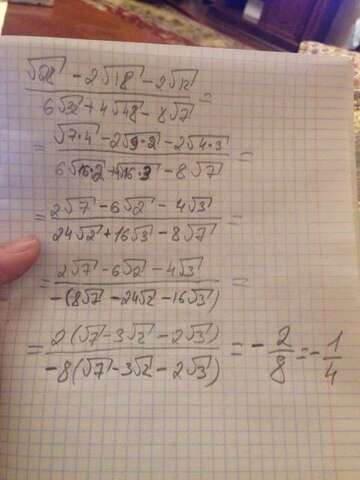 (√28 - 2√18 - 2√12)/(6√32 + 4√48 - 8√7) =
= (√7·4 - 2√9·2 - 2√4·3)/(6√16·2 + 4√16·3 - 8√7) =
= (2√7 - 6√2 - 4√3)/(24√2 + 16√3 - 8√7) =
= (2√7 - 6√2 - 4√3)/(-(8√7 - 24√2 - 16√3)) =
= (2(√7 - 3√2 - 2√3))/(-8(√7 - 3√2 - 2√3)) = -2/8 = -1/4